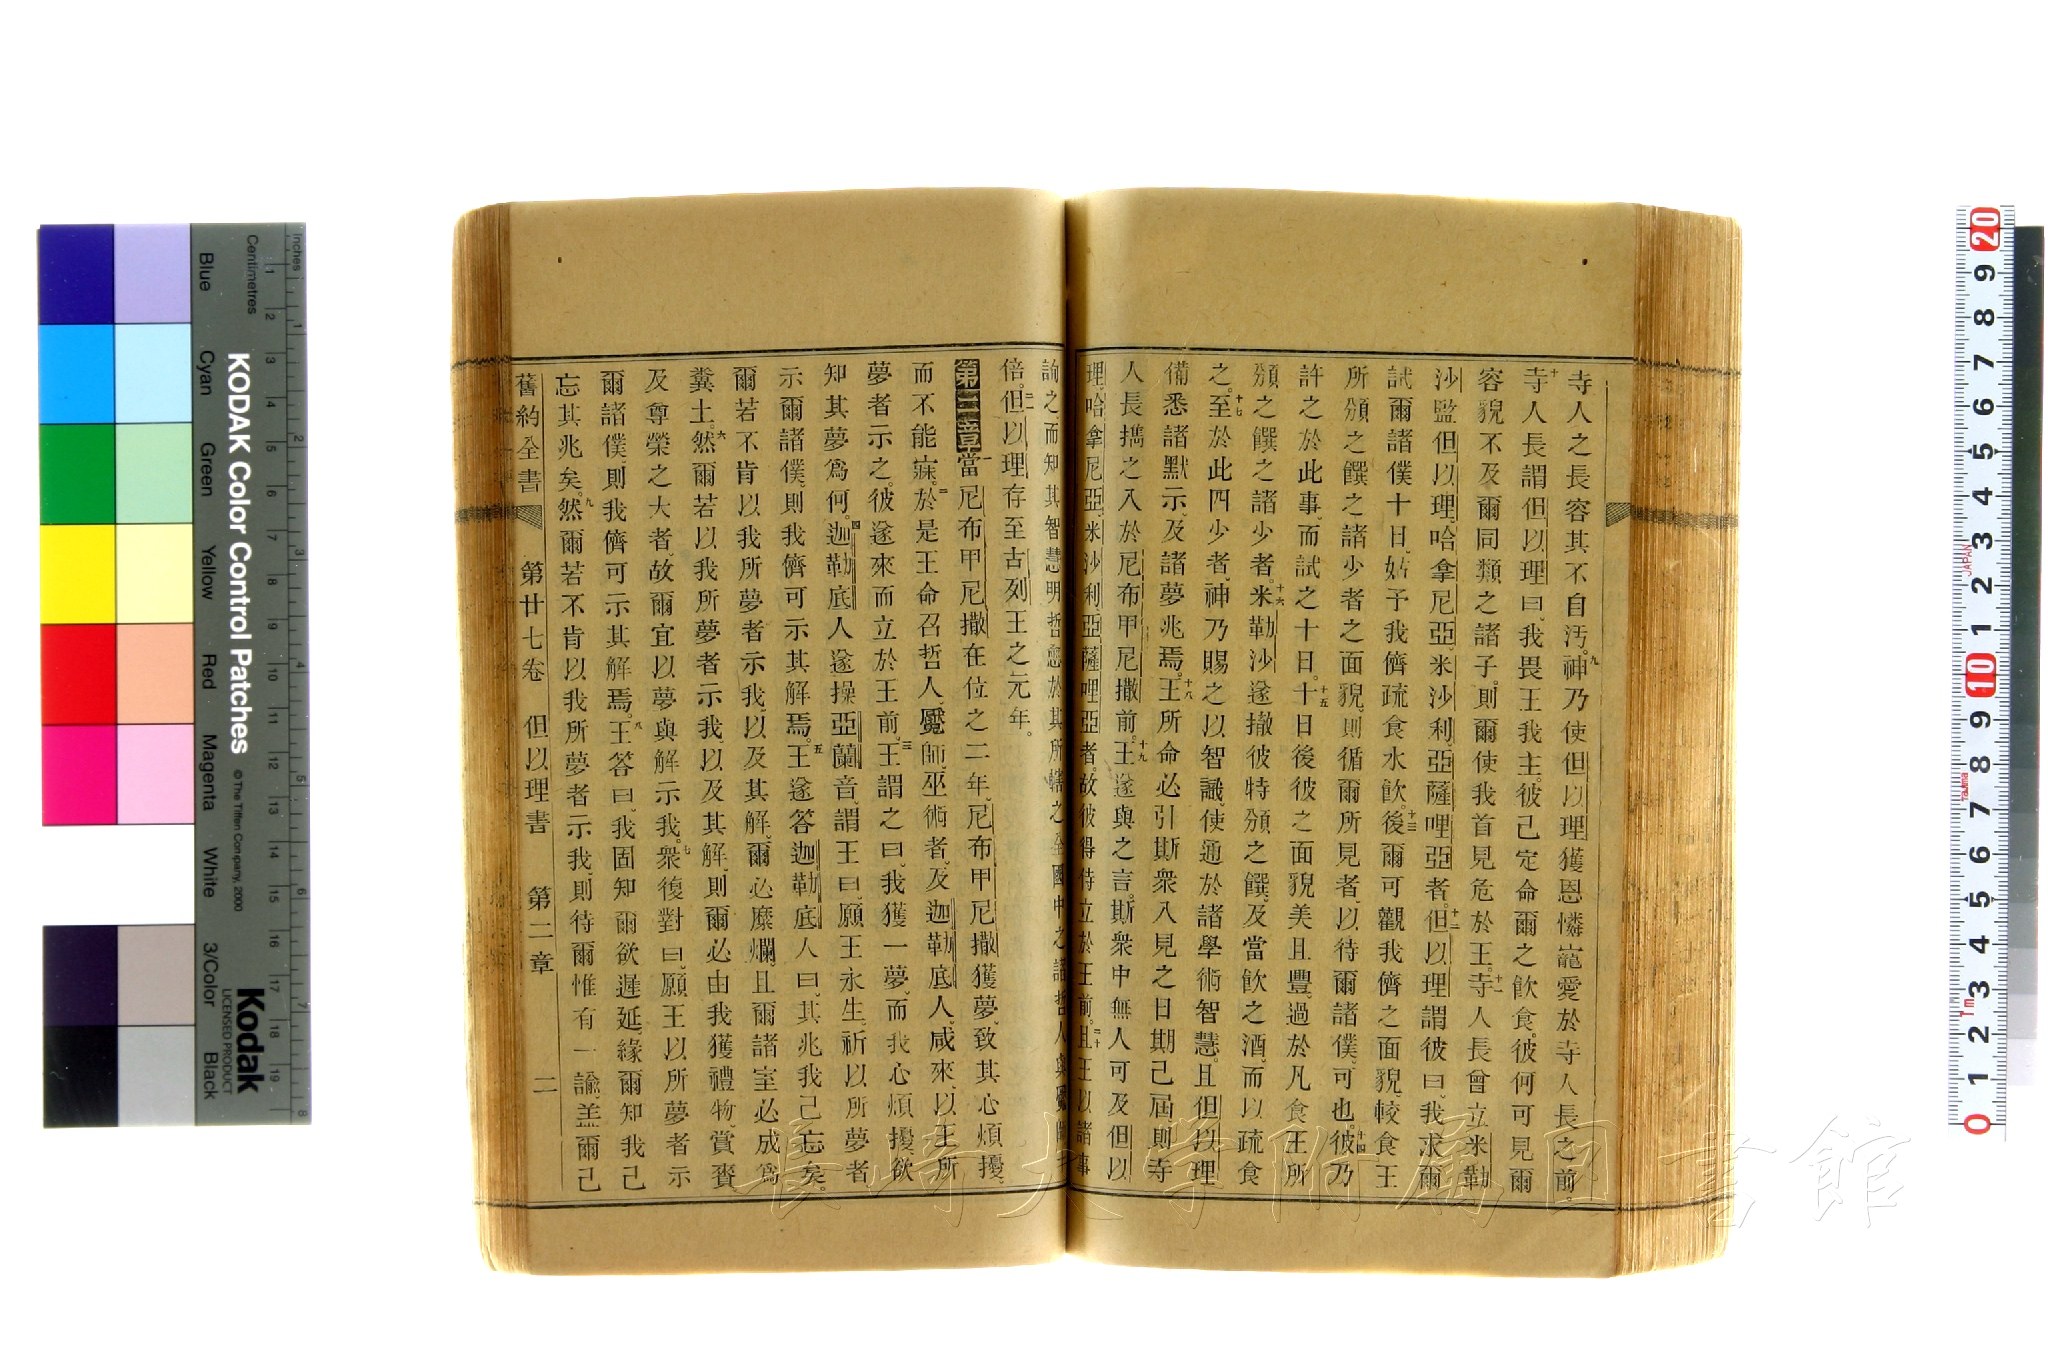 寺人之長容其不自汚。九神乃使但以理獲恩憐寵愛於寺人長之前。
十寺人長謂但以理曰、我畏王我主。彼己定命爾之飮食。彼何可見爾
容貌不及爾同類之諸子。則爾使我首見危於王。十一寺人長曾立米勒
沙監但以理、哈拿尼亞、米沙利、亞薩哩亞者。十二但以理謂彼曰、我求爾
試爾諸僕十日、姑予我儕疏食水飮。十三後爾可觀我儕之面貌、較食王
所頒之饌之諸少者之面貌、則循爾所見者、以待爾諸僕、可也。十四彼乃
許之於此事、而試之十日。十五十日後彼之面貌美且豐、過於凡食王所
頒之饌之諸少者。十六米勒沙遂撤彼特頒之饌、及當飮之酒、而以疏食
之。十七至於此四少者、神乃賜之以智識、使通於諸學術智慧、且但以理
備悉諸默示、及諸夢兆焉。十八王所命必引斯衆入見之日期己屆、則寺
人長攜之入於尼布甲尼撒前。十九王遂與之言。斯衆中無人可及但以
理、哈拿尼亞、米沙利、亞薩哩亞者。故彼得侍立於王前。二十且王以諸事
詢之、而知其智慧明哲愈於其所轄之全國中之諸哲人與魘
倍。但以理存至古列王之元年。
第二章 一當尼布甲尼撒在位之二年、尼布甲尼撒獲夢、致其心煩擾、
而不能寐。二於是王命召哲人、魘師、巫術者、及迦勒底人、咸來、以王所
夢者示之。彼遂來而立於王前。三王謂之曰、我獲一夢、而我心煩擾、欲
知其夢爲何。四迦勒底人遂操亞蘭音、謂王曰、願王永生、祈以所夢者
示爾諸僕、則我儕可示其解焉。五王遂答迦勒底人曰、其兆我己忘矣。
爾若不肯以我所夢者示我、以及其解、爾必糜爛、且爾諸室必成爲
糞土。六然爾若以我所夢者示我、以及其解、則爾必由我獲禮物、賞賚
及尊榮之大者、故爾宜以夢與解示我。七衆復對曰、願王以所夢者示
爾諸僕、則我儕可示其解焉。八王答曰、我固知爾欲遲延、緣爾知我己
忘其兆矣。九然爾若不肯以我所夢者示我、則待爾惟有一諭、蓋爾己
舊約全書 第廿七卷 但以理書 第二章 二
KODAK Color Control Patches
© The Tiffen Company, 2000
Kodak
LICENSED PRODUCT
Inches
Centimetres
1 2 3 4 5 6 7 8
1 2 3 4 5 6 7 8 9 10 11 12 13 14 15 16 17 18 19
Blue
Cyan
Green
Yellow
Red
Magenta
White
3/Color
Black
20 9 8 7 6 5 4 3 2 1 10 9 8 7 6 5 4 3 2 1 0
JAPAN
Tajima
1m
長崎大学附属図書館